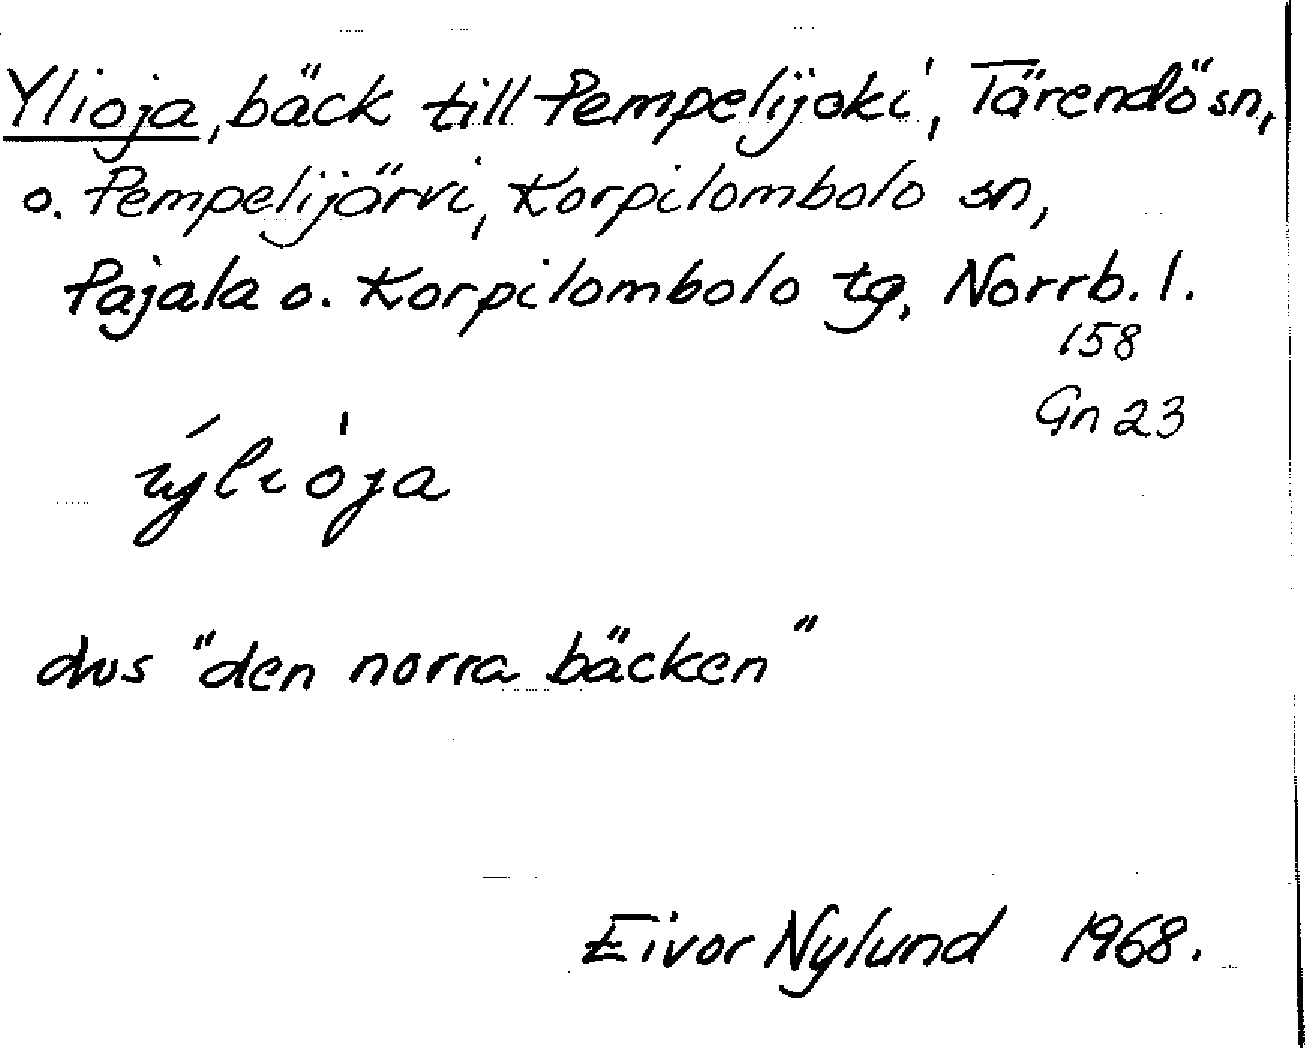 Ylioja, bäck till Pempelijoki, Tärendö sn,
o. Pempelijärvi, Korpilombolo sn,
Pajala o. Korpilombolo tg, Norrb. l.
158
Gn 23
ýliòja
dvs "den norra bäcken"
Eivor Nylund 1968.